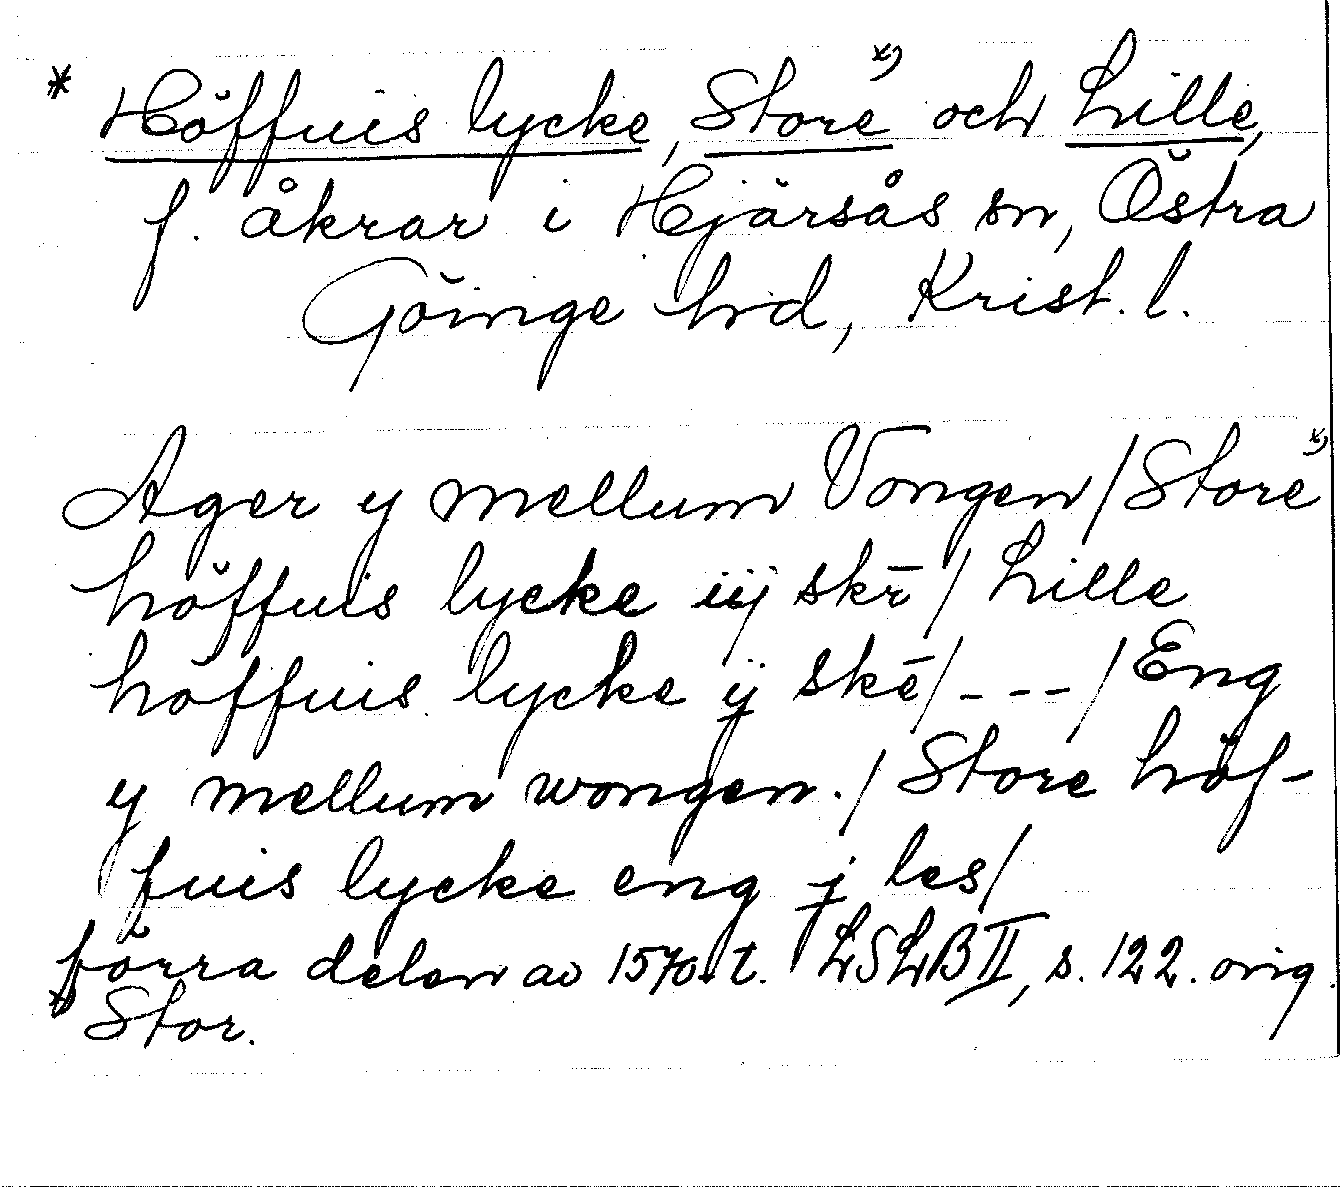 * Höffuis lycke, Store x) och Lille,
f. åkrar i Hjärsås sn, Östra
Göinge hrd, Krist. l.
Ager y mellum Vongen / Store x)
höffuis lycke iij skr̄ / Lille
höffuis lycke ij skē / - - - / Eng
y mellum wongen. / Store höf-
fuis lycke eng j les /
förra delen av 1570-t. LSLB II, s. 122. orig.
x) Stor.